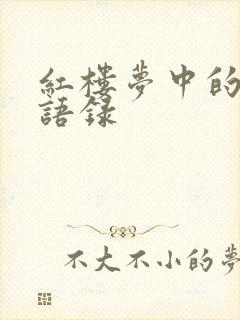 紅樓夢中的
語錄
不大不小的夢